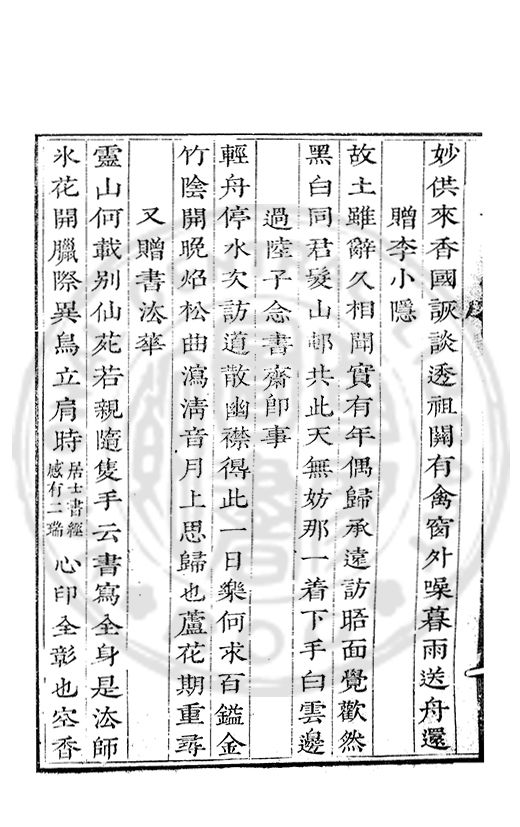 妙供來香國詼談透祖關有禽窗外噪暮雨送舟還
贈李小隱
故土雖辭久相聞實有年偶歸承遠訪晤面覺歡然
黑白同君髮山邨共此天無妨那一着下手白雲邊
過陸子念書齋卽事
輕舟停水次訪道散幽襟得此一日樂何求百鎰金
竹陰開晚炤松曲瀉淸音月上思歸也蘆花期重尋
又贈書法華
靈山何戴別仙苑若親隨隻手云書寫全身是法師
氷花開臘際異鳥立肩時居士書經感有二瑞心印全彰也空香